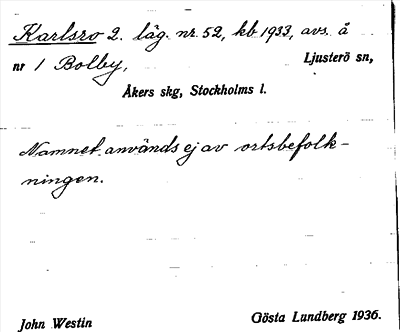 Karlsro 2. läg. nr. 52, kb 1933, avs. å
nr 1 Bolby, Ljusterö sn,
Åkers skg, Stockholms l.
Namnet användes ej av ortsbefolk-
ningen.
John Westin Gösta Lundberg 1936.